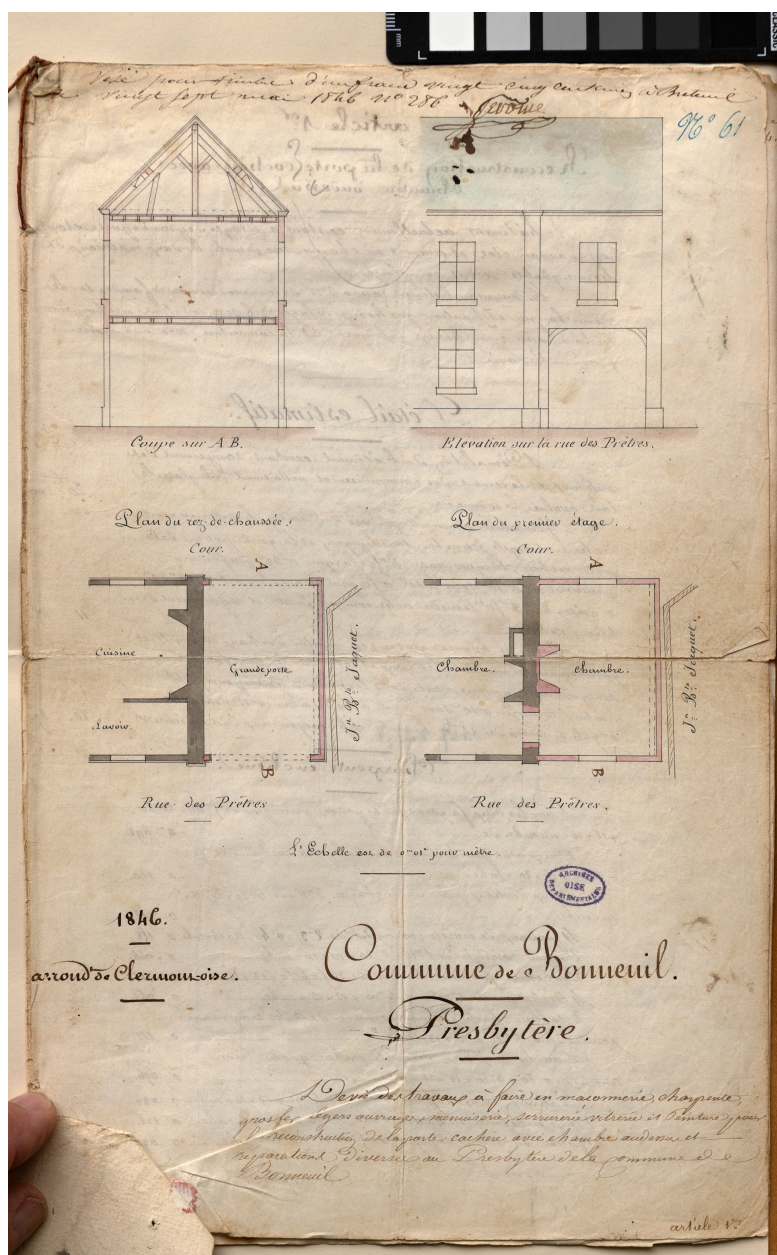 Visé pour timbre d'un franc vingt cinq centimes à Breteuil
le vingt sept mai 1846 N° 286
N° 61
Coupe sur A B.
Elevation sur la rue des Prêtres.
Plan du rez-de-chaussée.
Cour.
A
Cuisine
Grande porte
Lavoir
Jn Bte Jaquet.
B
Rue des Prêtres
Plan du premier étage.
Cour.
A
Chambre.
Chambre.
Jn Bte Jacquet.
B
Rue des Prêtres.
L'Echelle est de 0m01c pour mètre
ARCHIVES
DEPARTEMENTALES
OISE
1846.
arrondt de Clermont-oise.
Commune de Bonneuil.
Presbytère.
Devis des travaux à faire en maçonnerie, charpente,
gros fer, légers ouvrages, menuiserie, serrurerie vitrerie et Peinture pour
reconstruction de la porte cochère avec chambre au dessus et
réparations diverses au Presbytère de la commune de
Bonneuil
article 1er